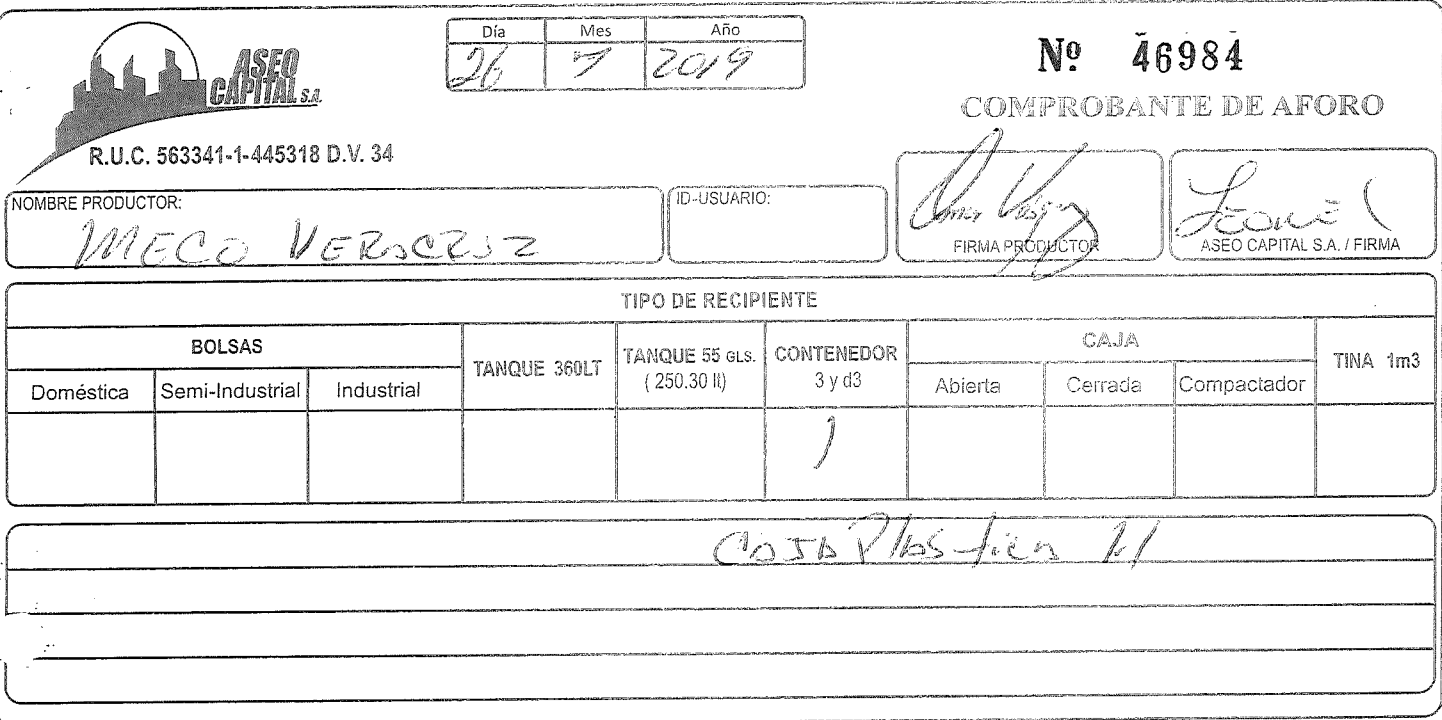 ASEO
CAPITAL S.A.
R.U.C. 563341-1-445318 D.V. 34
Día Mes Año
26 7 2019
Nº 46984
COMPROBANTE DE AFORO
NOMBRE PRODUCTOR:
MECO VERACRUZ
ID-USUARIO:
FIRMA PRODUCTOR
LEONEL
ASEO CAPITAL S.A. / FIRMA
TIPO DE RECIPIENTE
BOLSAS
Doméstica Semi-Industrial Industrial
TANQUE 360LT
TANQUE 55 GLS.
( 250.30 lt)
CONTENEDOR
3 y d3
CAJA
Abierta Cerrada Compactador
TINA 1m3
1
CAJA Plástica